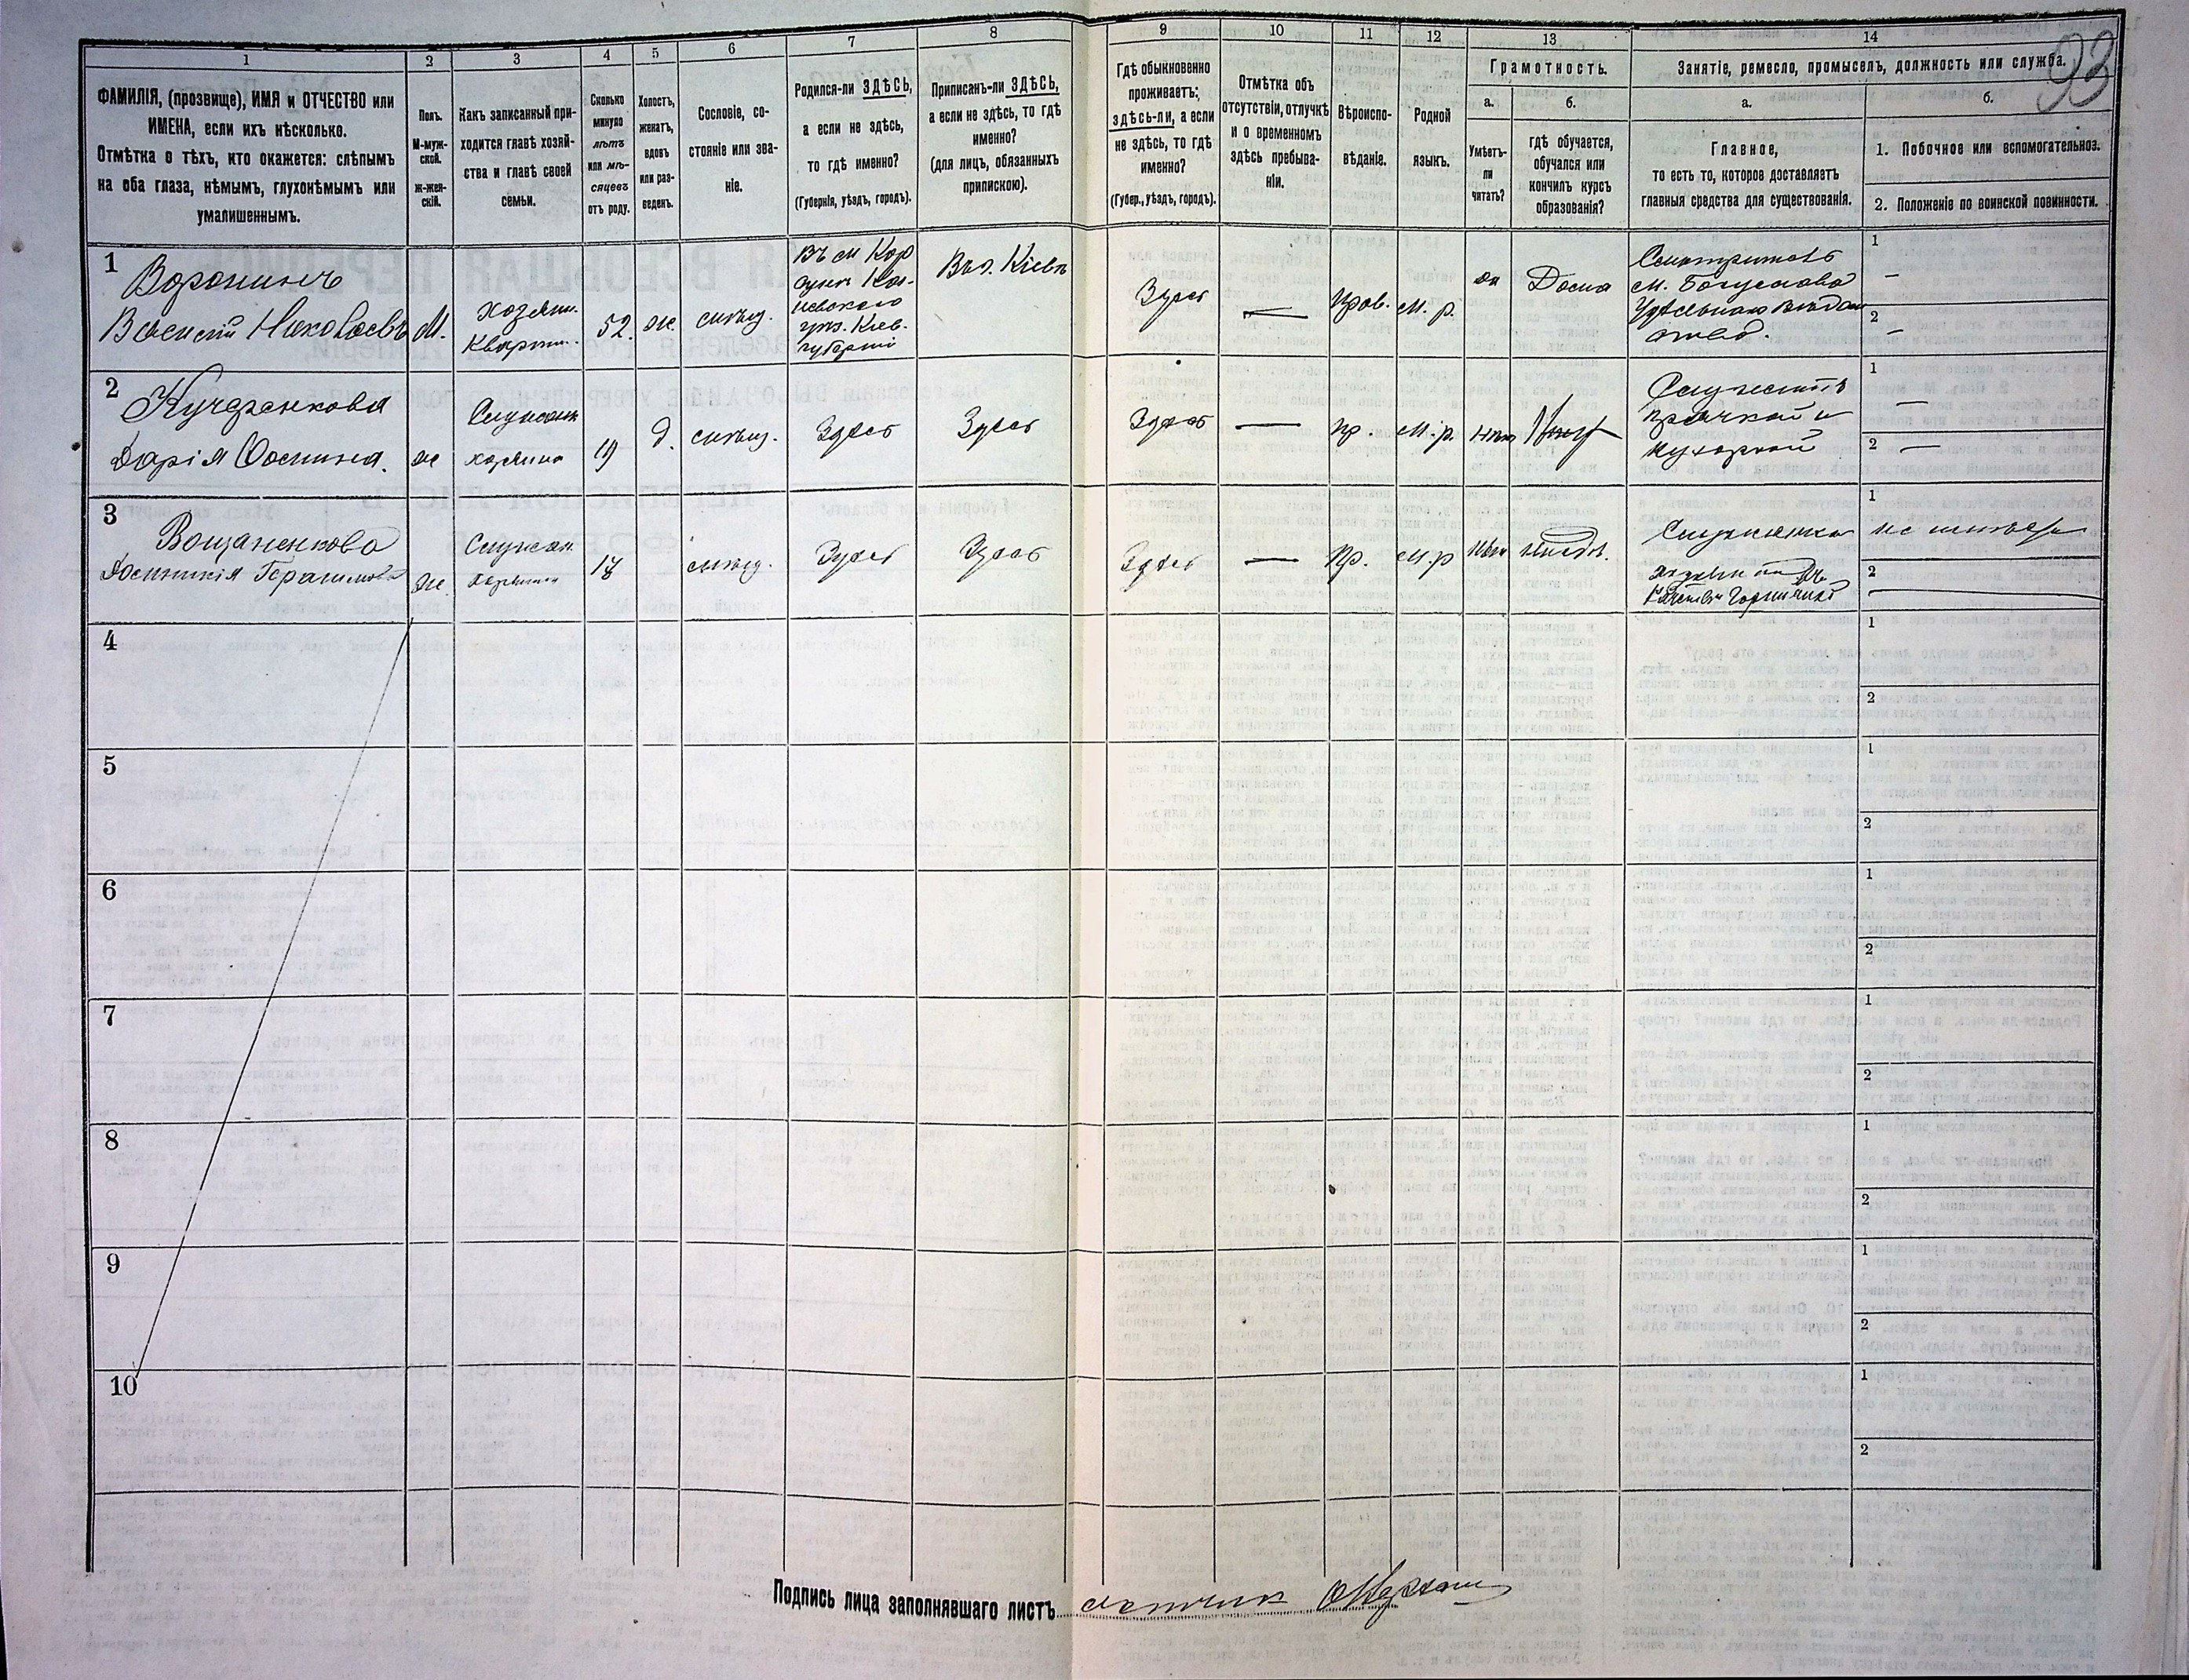 93
1
2
3
4
5
6
7
8
9
10
11
12
13
14
ФАМИЛІЯ, (прозвище), ИМЯ и ОТЧЕСТВО или
ИМЕНА, если ихъ нѣсколько.
Отмѣтка о тѣхъ, кто окажется: слѣпымъ
на оба глаза, нѣмымъ, глухонѣмымъ или
умалишеннымъ.
Полъ.
М-муж-
ской.
ж-жен-
скій.
Какъ записанный при-
ходится главѣ хозяй-
ства и главѣ своей
семьи.
Сколько
минуло
лѣтъ
или мѣ-
сяцевъ
отъ роду.
Холостъ,
женатъ,
вдовъ
или раз-
веденъ.
Сословіе, со-
стояніе или зва-
ніе.
Родился-ли ЗДѢСЬ,
а если не здѣсь,
то гдѣ именно?
(Губернія, уѣздъ, городъ).
Приписанъ-ли ЗДѢСЬ,
а если не здѣсь, то гдѣ
именно?
(для лицъ, обязанныхъ
припискою).
Гдѣ обыкновенно
проживаетъ:
здѣсь-ли, а если
не здѣсь, то гдѣ
именно?
(Губер., уѣздъ, городъ).
Отмѣтка объ
отсутствіи, отлучкѣ
и о временномъ
здѣсь пребыва-
ніи.
Вѣроиспо-
вѣданіе.
Родной
языкъ.
Грамотность.
а.
Умѣетъ-
ли
читать?
б.
гдѣ обучается,
обучался или
кончилъ курсъ
образованія?
Занятіе, ремесло, промыселъ, должность или служба.
а.
Главное,
то есть то, которое доставляетъ
главныя средства для существованія.
б.
1. Побочное или вспомогательное.
2. Положеніе по воинской повинности.
1
Воронинъ
Василій Николаевъ
М.
Хозяин.
Кварти..
52.
ж.
мѣщ.
Въ м Кор
сунѣ Ка-
невского
уѣз. Кіев.
губерніи
Въ г. Кіевѣ
Здѣсь
—
Прав.
М. р.
да
Дома
Смотритель
м. Богуслава
1
—
2
—
2
Кучеренкова
Дарія Осипина.
ж
хозяина
19
д.
мѣщ.
Здѣсь
Здѣсь
Здѣсь
—
пр.
М. р.
нѣт
Служитъ
прачкой и
кухаркой
1
—
2
—
3
Герасимова
ж.
Служан.
хозяина
мѣщ.
Здѣсь
Здѣсь
Здѣсь
—
Пр.
М. р
Нѣт
1
2
4
1
2
5
1
2
6
1
2
7
1
2
8
1
2
9
1
2
10
1
2
Подпись лица заполнявшаго листъ